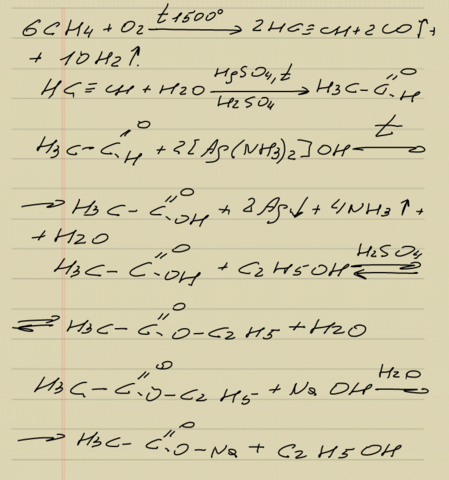 6CH4 + O2 —t 1500°→ 2HC≡CH + 2CO↑ +
+ 10H2↑
HC≡CH + H2O —HgSO4, t / H2SO4→ H3C–C(=O)–H
H3C–C(=O)–H + 2[Ag(NH3)2]OH —t→
→ H3C–C(=O)–OH + 2Ag↓ + 4NH3↑ +
+ H2O
H3C–C(=O)–OH + C2H5OH ⇌ H2SO4
⇌ H3C–C(=O)–O–C2H5 + H2O
H3C–C(=O)–O–C2H5 + NaOH —H2O→
→ H3C–C(=O)–O–Na + C2H5OH